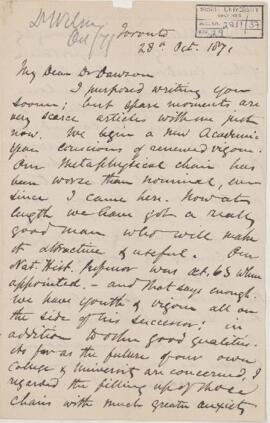 Dr Wilson
Oct /71
Toronto
28th Oct. 1871
My Dear Dr Dawson
I purposed writing you
sooner; but spare moments are
very scarce articles with me just
now. We begin a new Academic
year conscious of renewed vigour.
Our Metaphysical chair has
been worse than nominal, ever
since I came here. Now at
length we have got a really
good man who will make
it attractive & useful. Our
Nat. Hist. Professor was aet. 63 when
appointed, - and that says enough.
We have youth & vigour all on
the side of his successor: in
addition to other good qualities.
So far as the future of our own
College & University are concerned, I
regarded the filling up of those
chairs with much greater anxiety